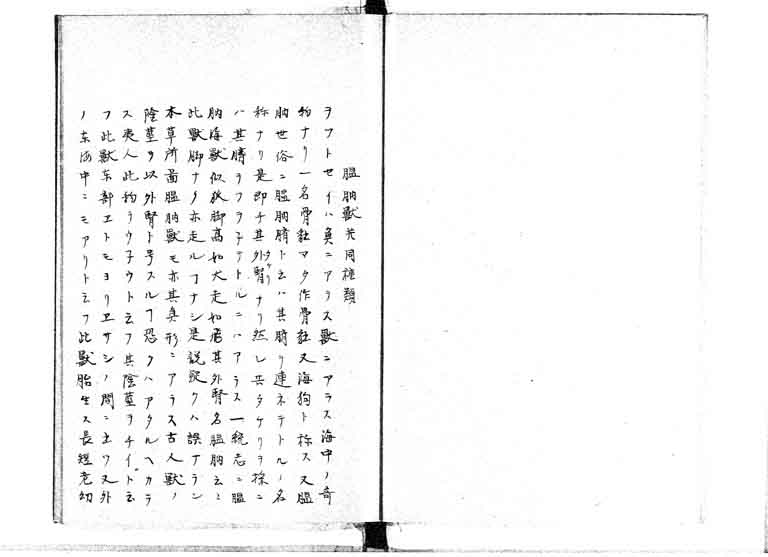 膃肭獸并同種類
ヲフトセイハ魚ニアラス獸ニアラス海中ノ奇
物ナリ一名骨貀マタ作骨䝔又海狗ト称ス又膃
肭世俗ニ膃肭臍ト云ハ其臍ヲ連ネテトルノ名
称ナリ是即チ其外腎タケリナリ然レ𪜈タケリヲ採ニ
ハ其臍ヲフラ子テトルニハアラス一統志ニ膃
肭海獸似狐脚高如犬走如飛其外腎名膃肭云々
此獸脚ナク亦走ルヿナシ是說恐クハ誤ナラン
本草所圖膃肭獸モ亦其真形ニアラス古人獸ノ
陰莖ヲ以外腎ト号スルヿ恐クハアタルヘカラ
ス夷人此物ヲウ子ウト云フ其陰莖ヲチイト云
フ此獸东部エトモヨリヱサシノ間ニ出ツ又外
ノ东海中ニモアリト云フ此獸胎生ス長短老幼